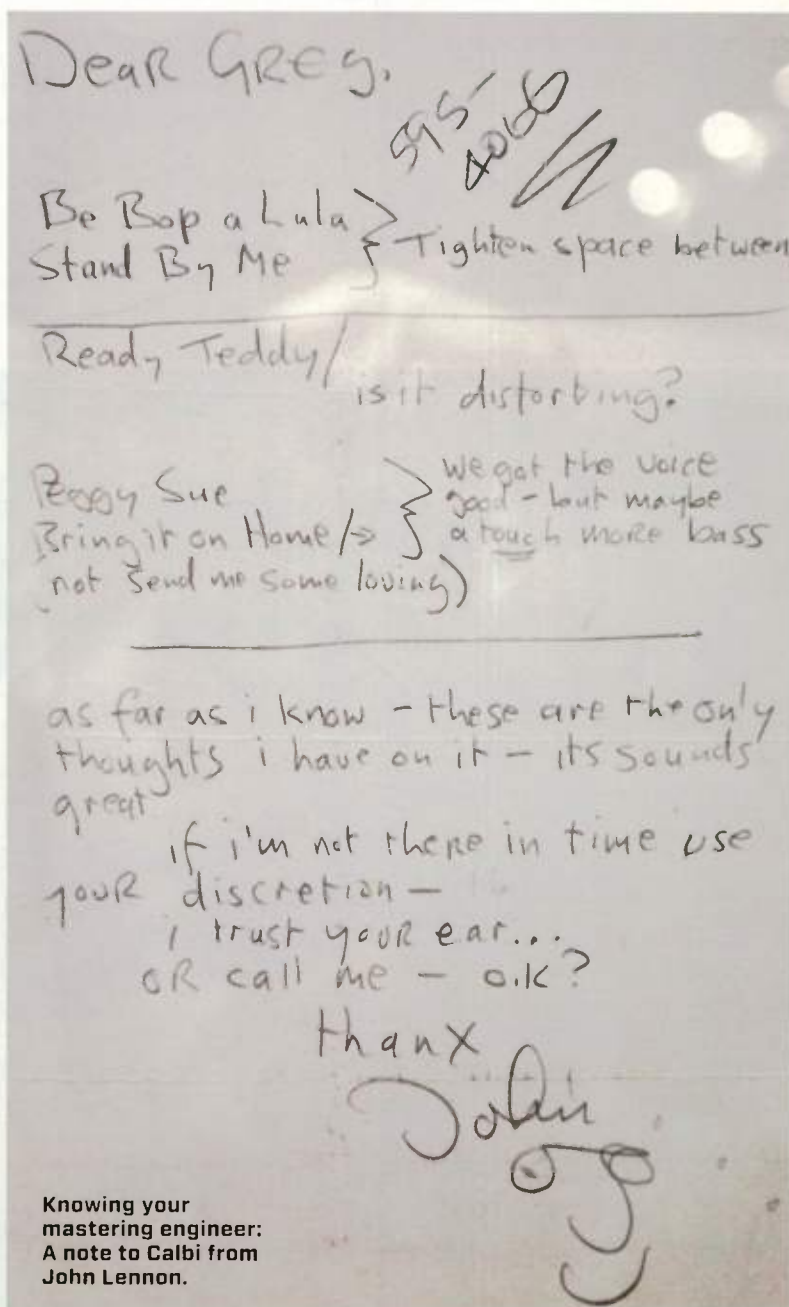 Dear Greg.
595-
4066
Be Bop a Lula
Stand By Me } Tighten space between
Ready Teddy/
is it distorbing?
Peggy Sue
Bring it on Home/→
not Send me some loving)
} we got the voice
good - but maybe
a touch more bass
as far as i know - these are the only
thoughts i have on it - its sounds
great
if i'm not there in time use
your discretion -
i trust your ear...
or call me - o.k?
thanx
John
Knowing your
mastering engineer:
A note to Calbi from
John Lennon.